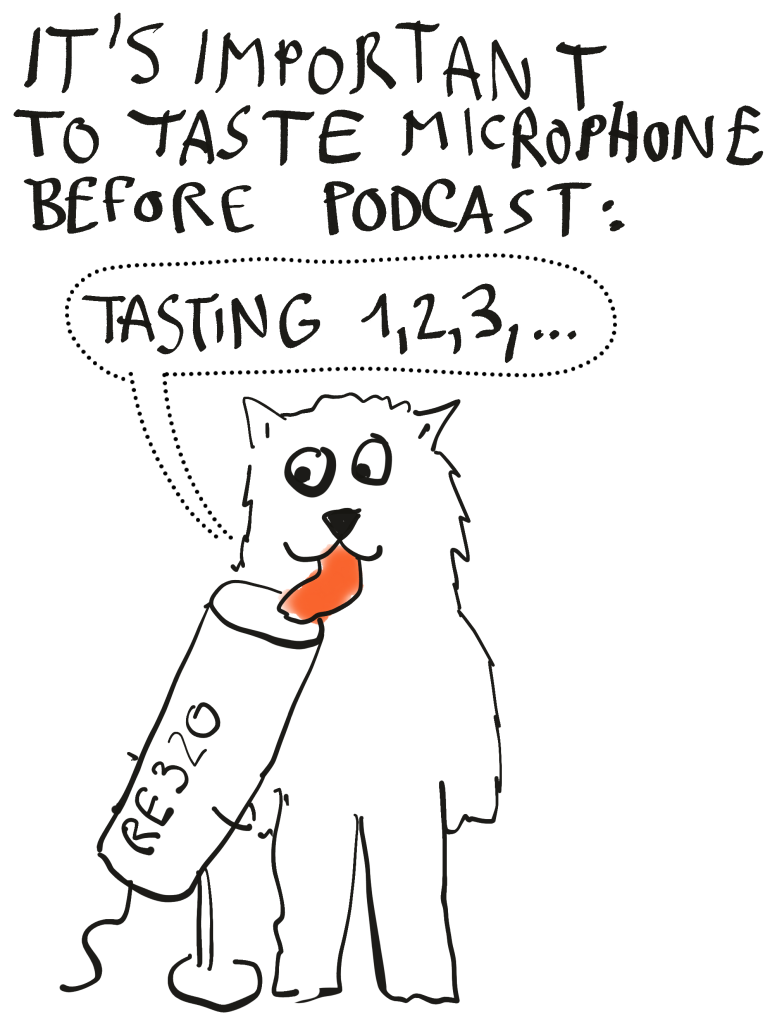 IT'S IMPORTANT
TO TASTE MICROPHONE
BEFORE PODCAST:
TASTING 1,2,3,...
RE320